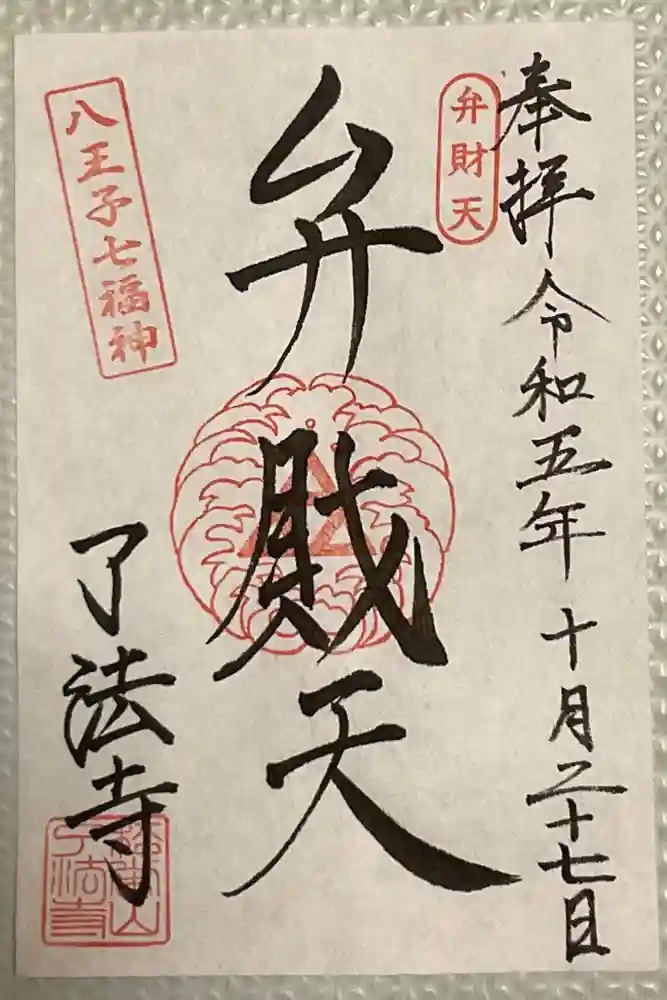 奉拝
令和五年十月二十七日
弁財天
弁財天
八王子七福神
了法寺
松栄山
了法寺